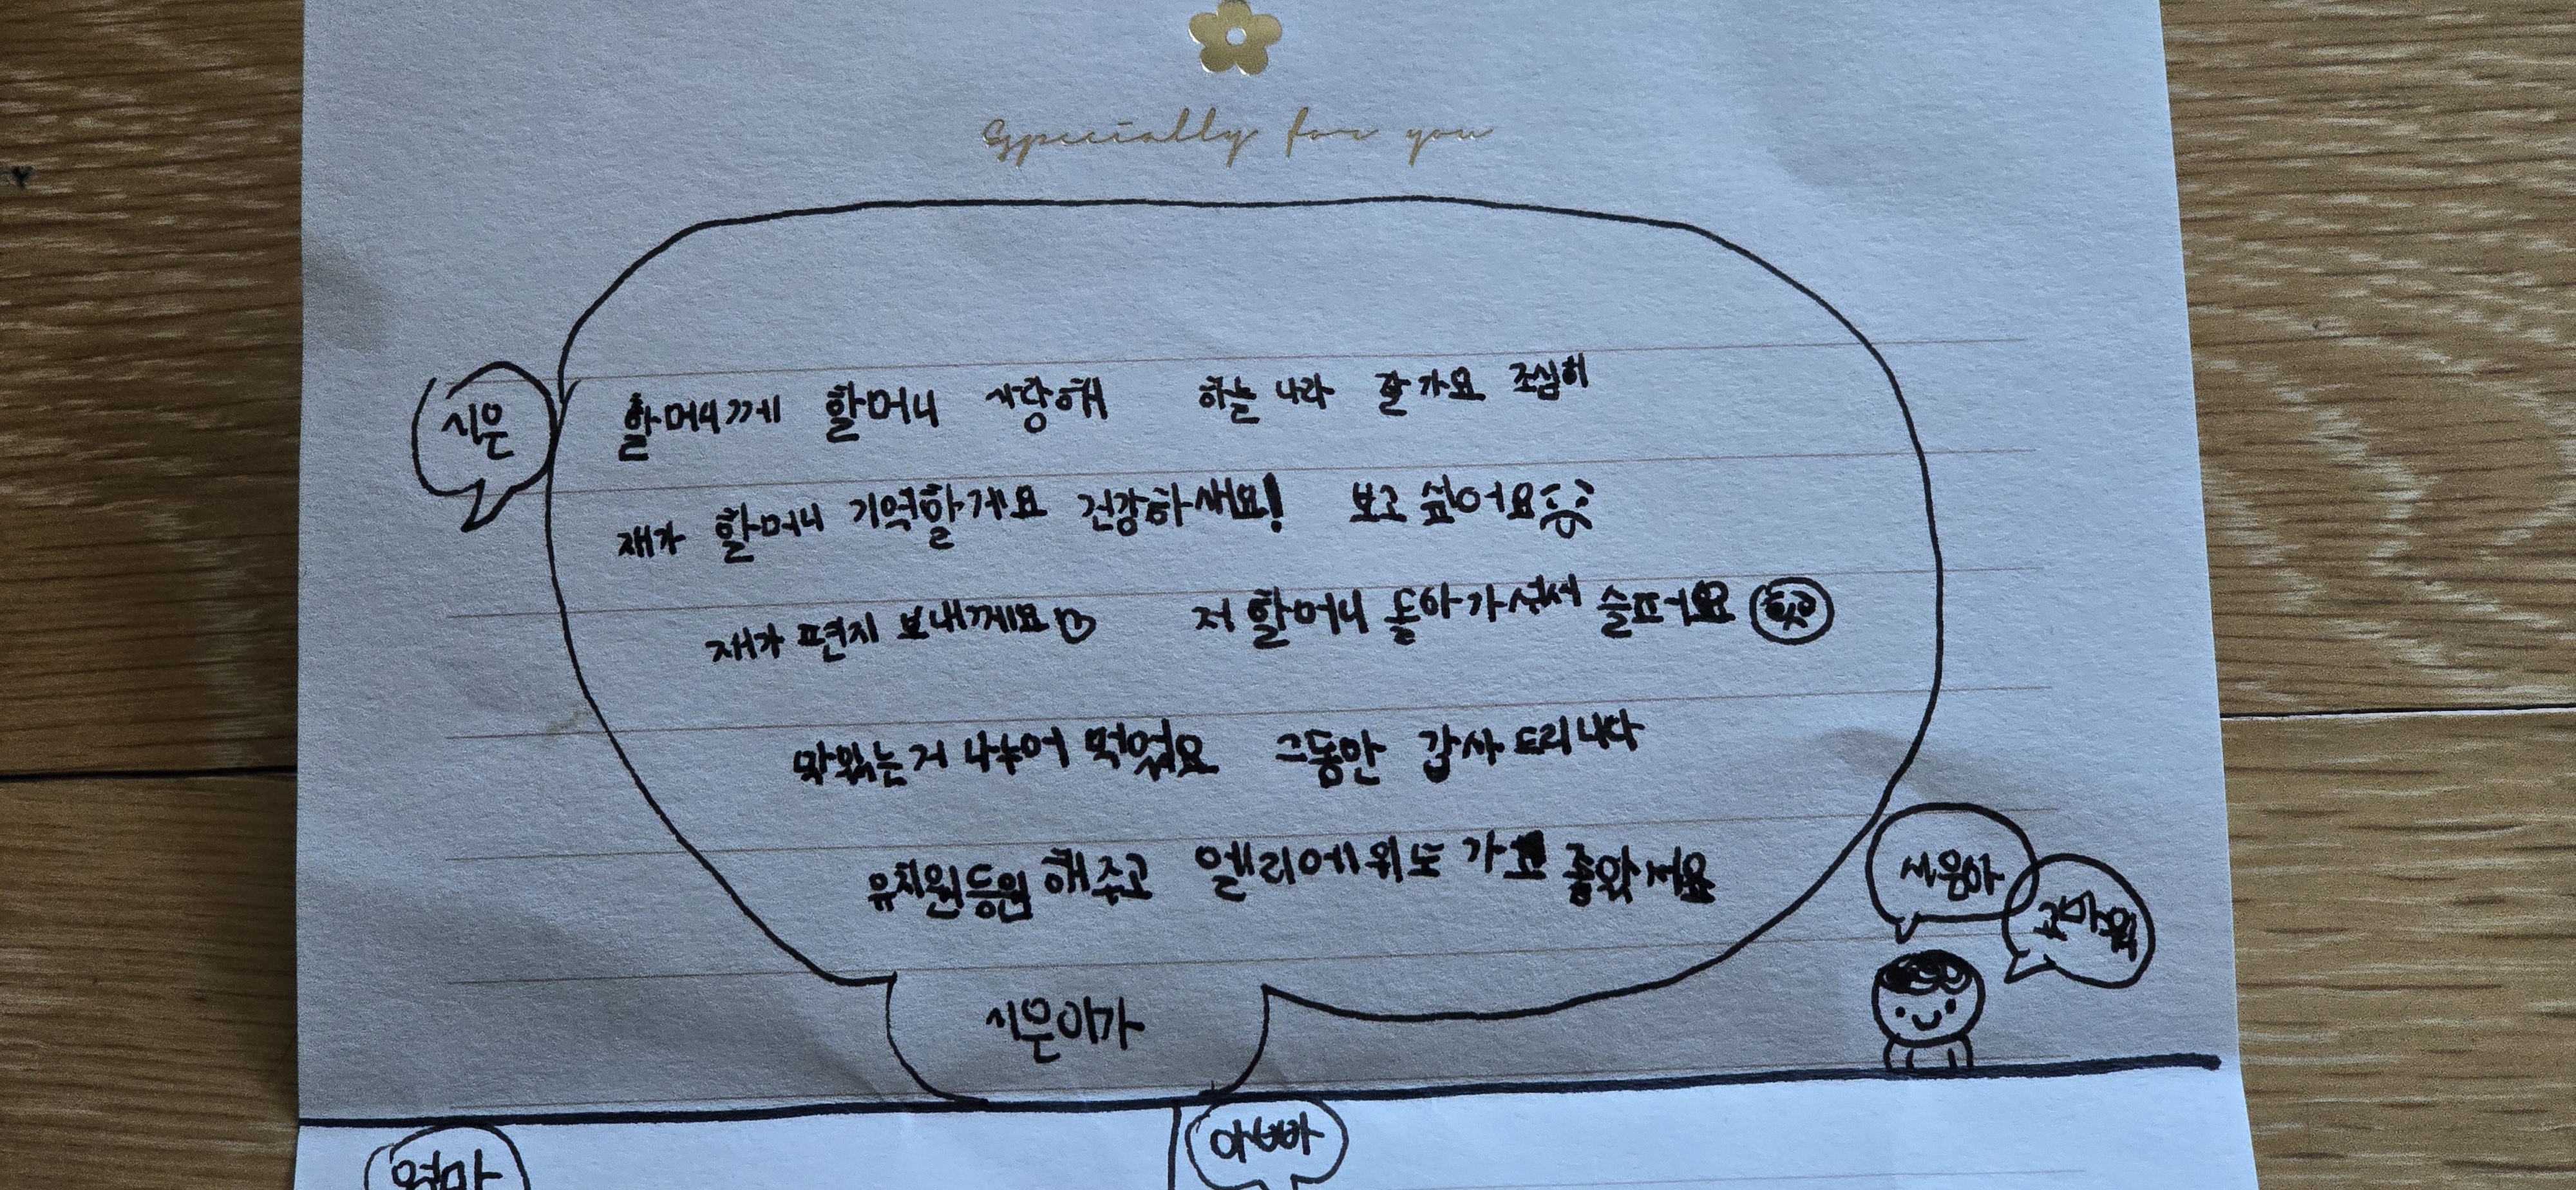 Specially for you
시은
할머니께 할머니 사랑해 하늘 나라 잘가요 조심히
재가 할머니 기억할게요 건강하새요! 보고 싶어요
재가 편지 보내께요♡ 저 할머니 돌아가셔서 슬프어요
맛있는거 나누어 먹었요 그동안 감사 드리니다
유치원등원 해주고 엘리에위도 가고 좋았서요
시은아
고마워
시은이가
아빠
엄마